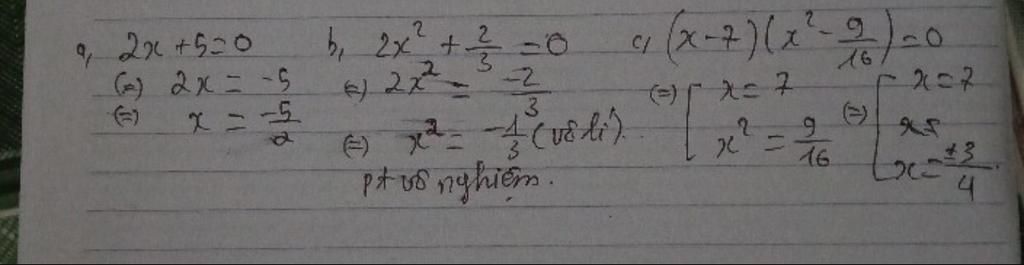 a, 2x + 5 = 0
(=) 2x = -5
(=) x = -5/2
b, 2x² + 2/3 = 0
(=) 2x² = -2/3
(=) x² = -1/3 (vô lí)
pt vô nghiệm.
c, (x-7)(x² - 9/16) = 0
(=) [ x = 7
x² = 9/16
(=) [ x = 7
x = ±3/4